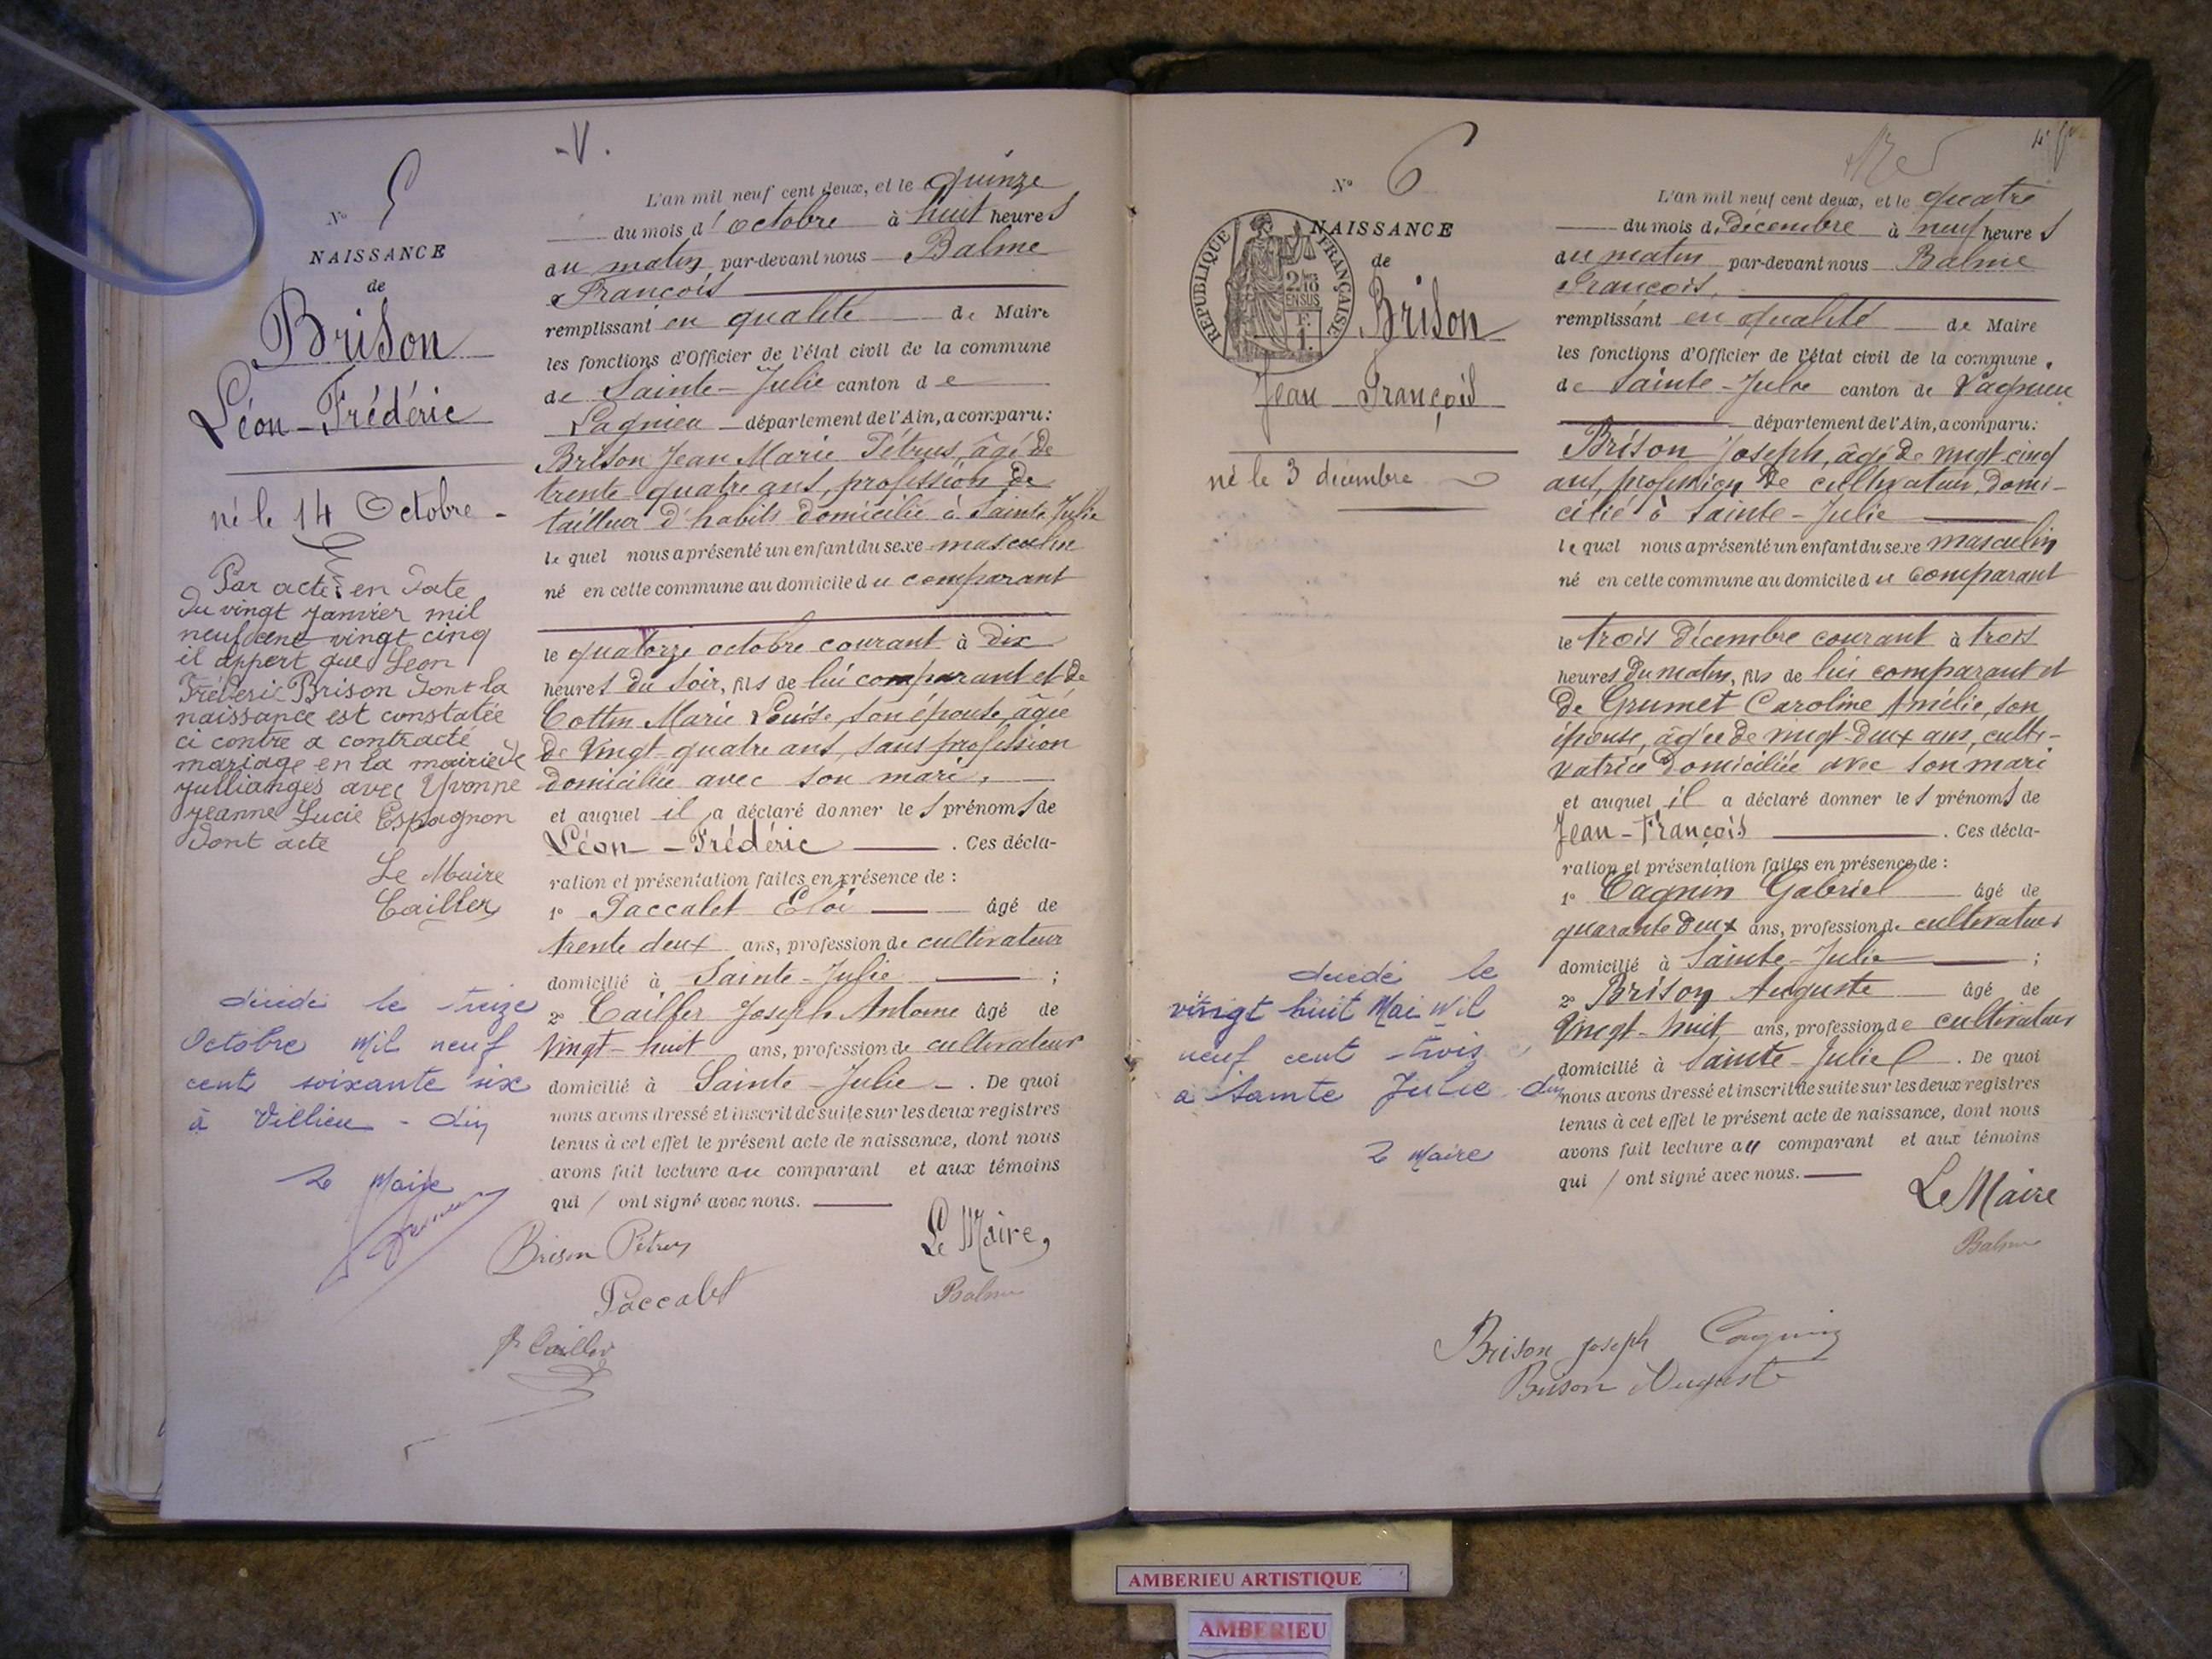 -V.
N° 5
NAISSANCE
de
Brison
Léon-Frédéric
né le 14 Octobre -
Par acte en date
du vingt janvier mil
neuf cent vingt cinq
il appert que Léon
Fréderic Brison dont la
naissance est constatée
ci contre a contracté
mariage en la mairie de
Jullianges avec Yvonne
Jeanne Lucie Espagnon
dont acte
Le Maire
Cailler
décédé le treize
Octobre mil neuf
cent soixante six
à Villieu - Ain
Le Maire
L'an mil neuf cent deux, et le quinze
du mois d'octobre à huit heures
du matin par-devant nous Balme
François
remplissant en qualité de Maire
les fonctions d'Officier de l'état civil de la commune
de Sainte-Julie canton de
Lagnieu département de l'Ain, a comparu:
Brison Jean Marie Pétrus, âgé de
trente-quatre ans, profession de
tailleur d'habits domicilié à Sainte Julie
lequel nous a présenté un enfant du sexe masculin
né en cette commune au domicile du comparant
le quatorze octobre courant à dix
heures du soir, fils de lui comparant et de
Cottin Marie Louise, son épouse, âgée
de vingt-quatre ans, sans profession
domiciliée avec son mari,
et auquel il a déclaré donner les prénoms de
Léon-Frédéric. Ces décla-
ration et présentation faites en présence de :
1° Paccalet Eloi âgé de
trente deux ans, profession de cultivateur
domicilié à Sainte-Julie ;
2° Cailler Joseph Antoine âgé de
vingt-huit ans, profession de cultivateur
domicilié à Sainte-Julie. De quoi
nous avons dressé et inscrit de suite sur les deux registres
tenus à cet effet le présent acte de naissance, dont nous
avons fait lecture au comparant et aux témoins
qui / ont signé avec nous.
Le Maire,
Brison Pétrus
Balme
Paccalet
Cailler
N° 6
NAISSANCE
de
REPUBLIQUE FRANÇAISE
2/10 EN SUS
F. 1.
Brison
Jean François
né le 3 décembre
décédé le
vingt huit Mai Mil
neuf cent trois
à Sainte Julie Ain
Le Maire
L'an mil neuf cent deux, et le quatre
du mois de décembre à neuf heures
du matin par-devant nous Balme
François,
remplissant en qualité de Maire
les fonctions d'Officier de l'état civil de la commune
de Sainte-Julie canton de Lagnieu
département de l'Ain, a comparu:
Brison Joseph, âgé de vingt-cinq
ans, profession de cultivateur, domi-
cilié à Sainte-Julie
lequel nous a présenté un enfant du sexe masculin
né en cette commune au domicile du comparant
le trois décembre courant à trois
heures du matin, fils de lui comparant et
de Grumet Caroline Amélie, son
épouse, âgée de vingt-deux ans, culti-
vatrice domiciliée avec son mari
et auquel il a déclaré donner les prénoms de
Jean-François. Ces décla-
ration et présentation faites en présence de :
1° Cagnin Gabriel âgé de
quarante deux ans, profession de cultivateur
domicilié à Sainte-Julie ;
2° Brison Auguste âgé de
vingt-huit ans, profession de cultivateur
domicilié à Sainte-Julie. De quoi
nous avons dressé et inscrit de suite sur les deux registres
tenus à cet effet le présent acte de naissance, dont nous
avons fait lecture au comparant et aux témoins
qui / ont signé avec nous.
Le Maire
Balme
Brison Joseph Cagnin
Brison Auguste
AMBERIEU ARTISTIQUE
AMBERIEU